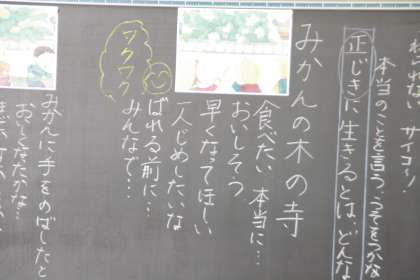 本当のことを言う、うそをつかな
正じきに生きるとは、どんな
みかんの木の寺
食べたい 本当に…
おいしそう
早くなってほしい
一人じめしたいな
ばれる前に…
みんなで…
ワクワク
みかんに手をのばしたと
おいしくなたかな…